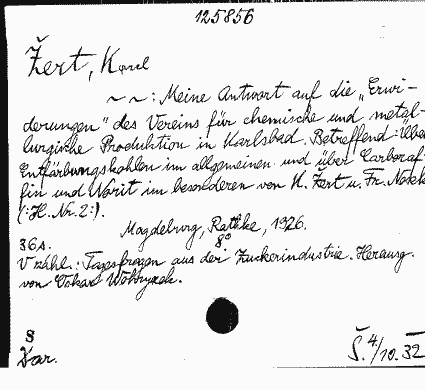 125856
Žert, Karel
~ ~ : Meine Antwort auf die „Erwi-
derungen" des Vereins für chemische und metal-
lurgische Produktion in Karlsbad. Betreffend: Über
Entfärbungskohlen im allgemeinen und über Carboraf-
fin und Norit im besonderen von K. Žert u. Fr.
(:H. Nr. 2:).
Magdeburg, Rathke, 1926.
36 s. 8°
V záhl.: Tagesfragen aus der Zuckerindustrie. Herausg.
von Oskar Wohryzek.
8
Dar.
Š. 4/10. 32